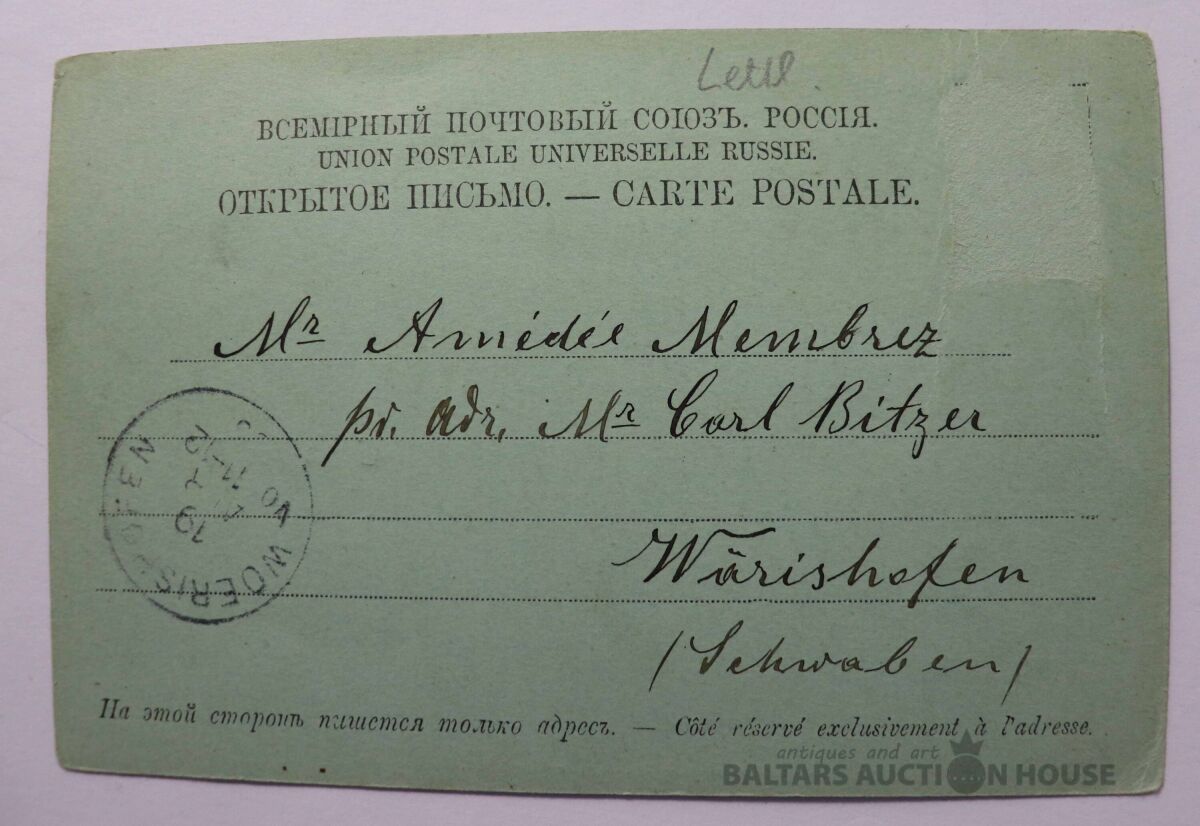 Lettl.
ВСЕМІРНЫЙ ПОЧТОВЫЙ СОЮЗЪ. РОССІЯ.
UNION POSTALE UNIVERSELLE RUSSIE.
ОТКРЫТОЕ ПИСЬМО. — CARTE POSTALE.
Mr Amédée Membrez
pr. adr. Mr Carl Bitzer
WOERISHOFEN
19
11-12
Wörishofen
(Schwaben)
На этой сторонѣ пишется только адресъ. — Côté réservé exclusivement à l'adresse.
antiques and art
BALTARS AUCTION HOUSE